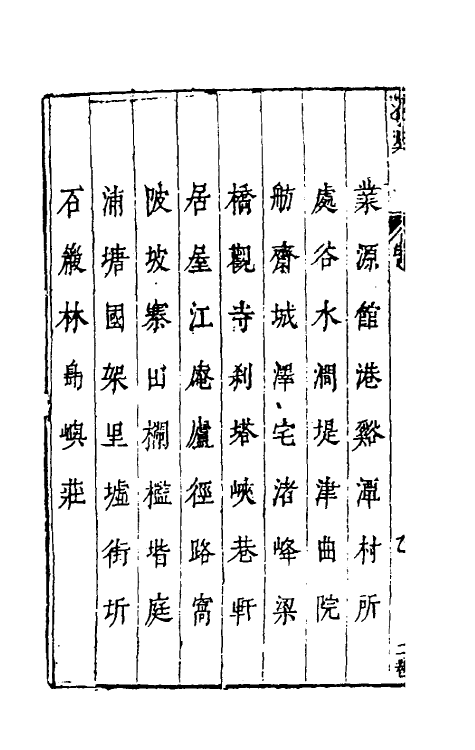 業源館港谿潭村所
處谷水澗堤津曲院
舫齋城澤宅渚峰梁
橋觀寺刹塔峽巷軒
居屋江庵廬徑路窩
陂坡寨田欄檻堦庭
浦塘國架里墟街圻
石巖林島嶼莊